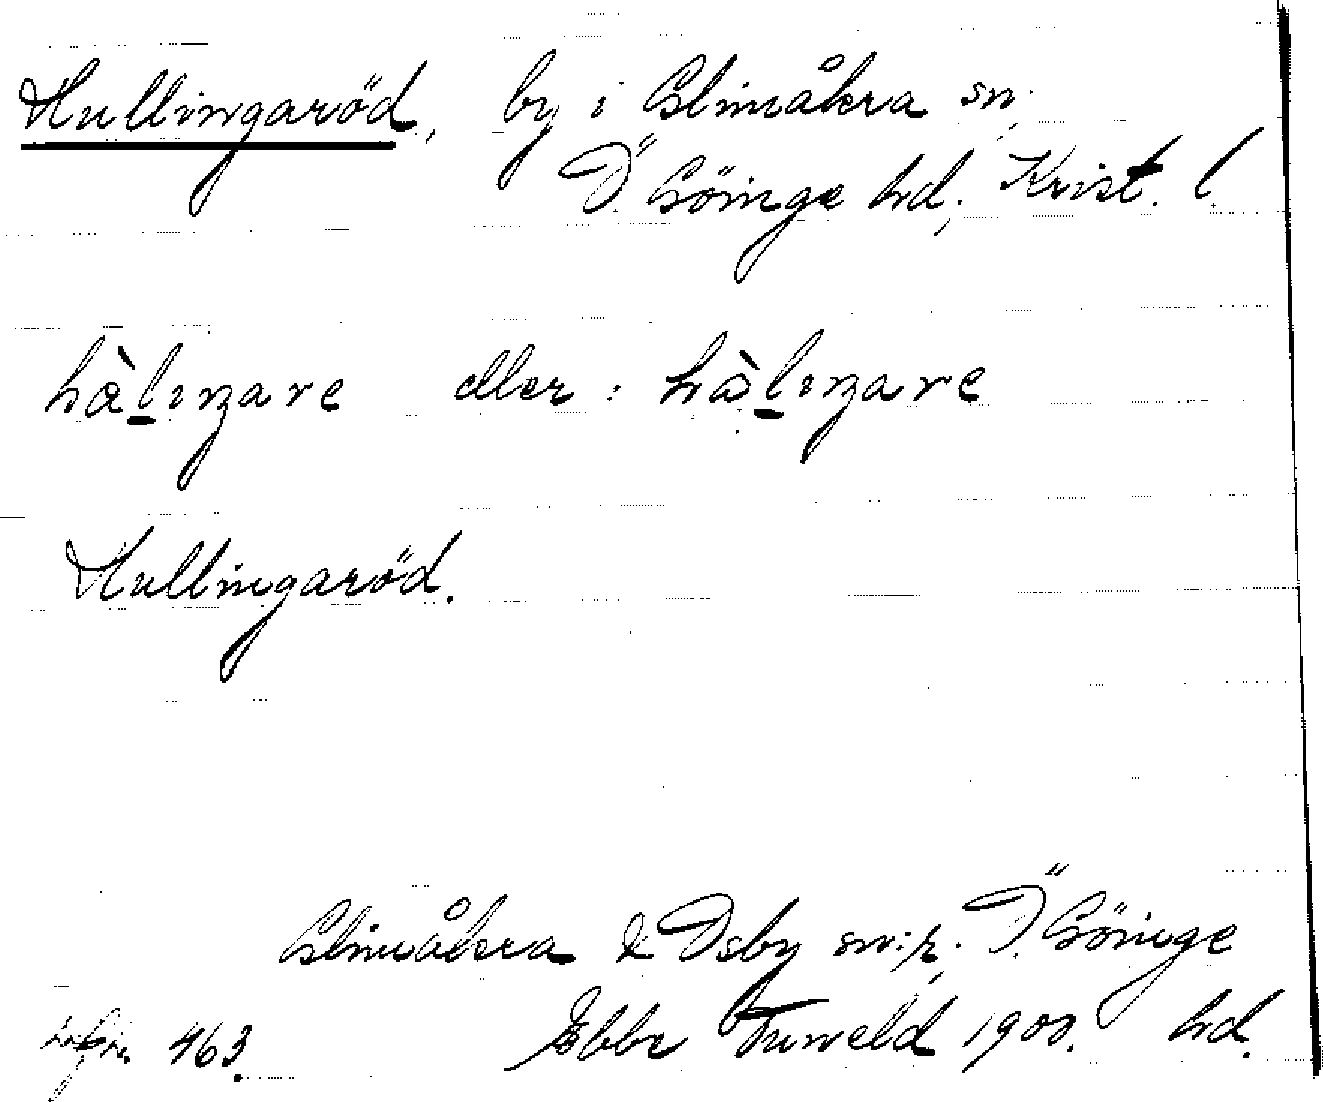 Hullingaröd, by i Glimåkra sn,
Ö. Göinge hd, Krist. l.
hàliŋare eller: hàliŋare
Hullingaröd.
Glimåkra & Osby sn:r, Ö. Göinge
463. Ebbe Tuneld 1900. hd.